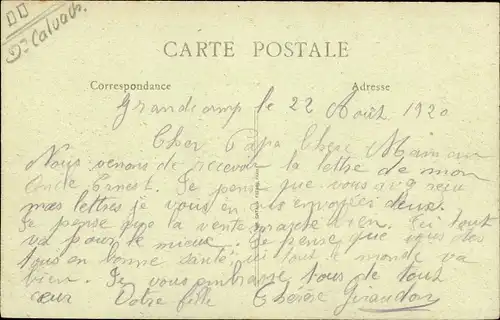 Dr Calvados
CARTE POSTALE
Correspondance
Adresse
Grandcamp le 22 Août 1920
Cher Papa Chère Maman
Nous venons de recevoir la lettre de mon
Oncle Ernest. Je pense que vous avez reçu
mes lettres je vous en ai envoyées deux.
Je pense que la vente marche bien. Ici tout
va pour le mieux. Je pense que vous êtes
tous en bonne santé ici tout le monde va
bien. Je vous embrasse tous de tout
cœur Votre fille Thérèse Giraudon